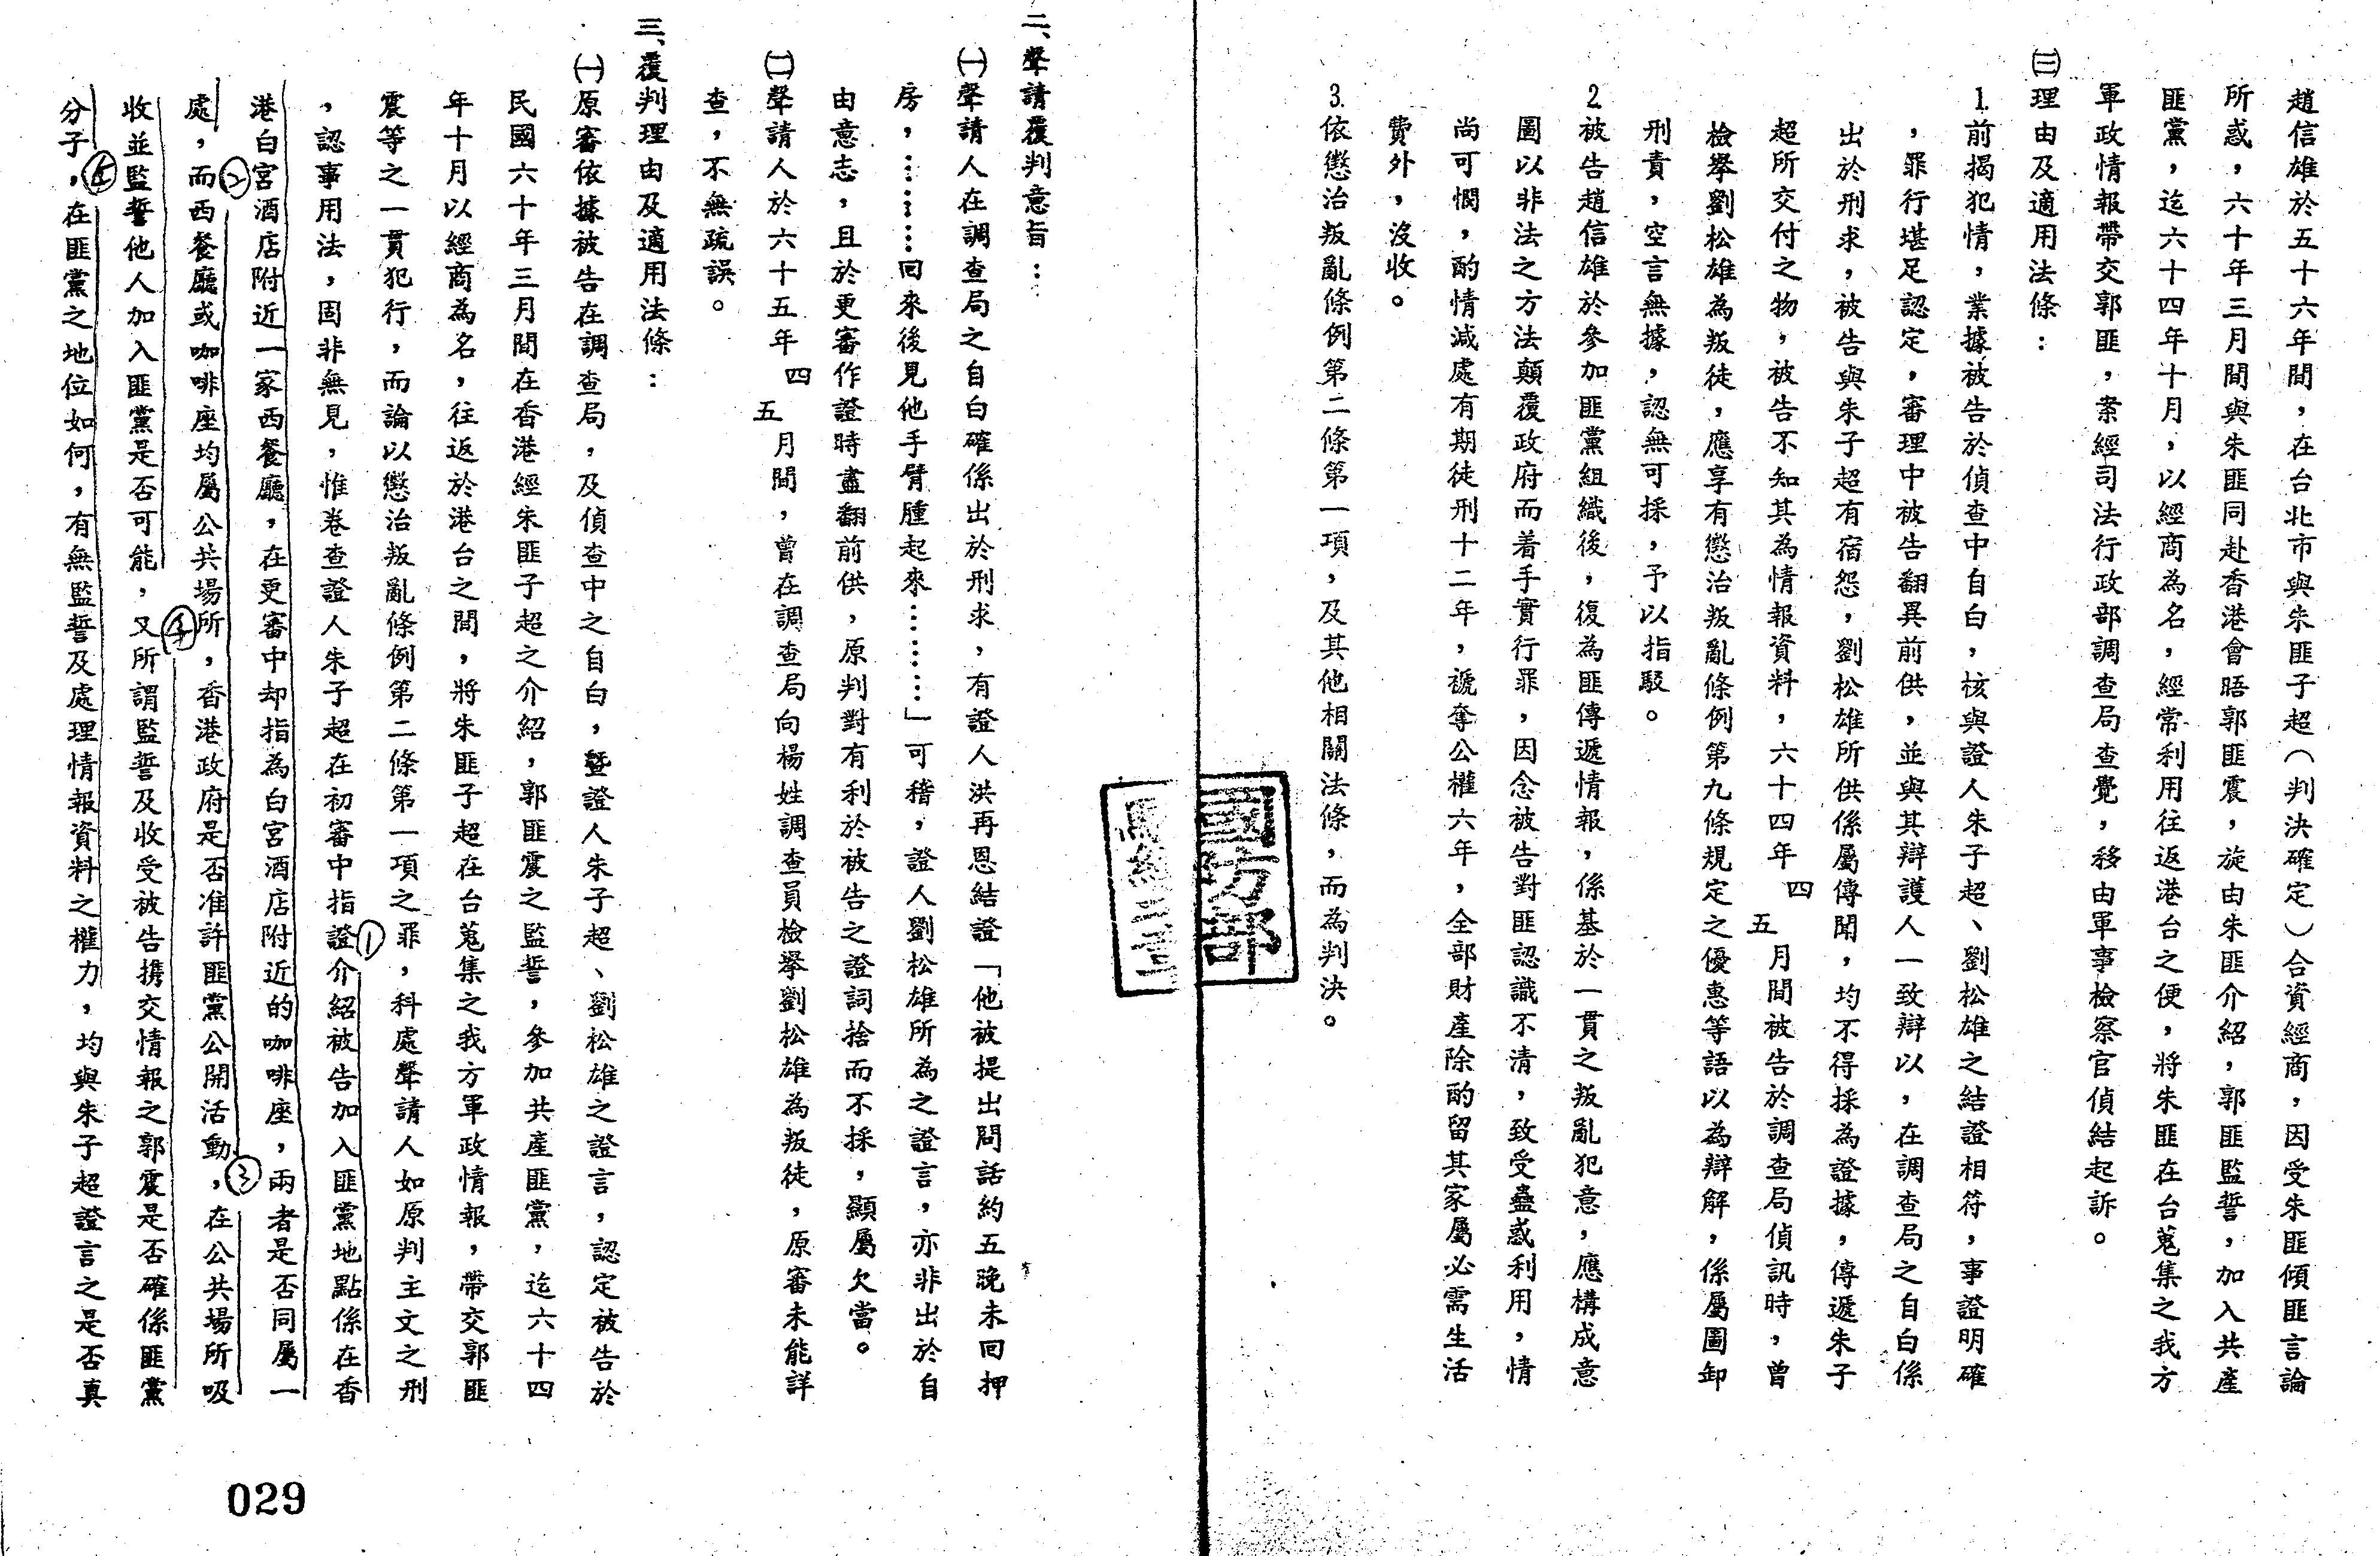 趙信雄於五十六年間，在台北市與朱匪子超（判決確定）合資經商，因受朱匪傾匪言論
所惑，六十年三月間與朱匪同赴香港會晤郭匪震，旋由朱匪介紹，郭匪監誓，加入共產
匪黨，迄六十四年十月，以經商為名，經常利用往返港台之便，將朱匪在台蒐集之我方
軍政情報帶交郭匪，案經司法行政部調查局查覺，移由軍事檢察官偵結起訴。
㈢理由及適用法條：
1.前揭犯情，業據被告於偵查中自白，核與證人朱子超、劉松雄之結證相符，事證明確
，罪行堪足認定，審理中被告翻異前供，並與其辯護人一致辯以，在調查局之自白係
出於刑求，被告與朱子超有宿怨，劉松雄所供係屬傳聞，均不得採為證據，傳遞朱子
超所交付之物，被告不知其為情報資料，六十四年四五月間被告於調查局偵訊時，曾
檢舉劉松雄為叛徒，應享有懲治叛亂條例第九條規定之優惠等語以為辯解，係屬圖卸
刑責，空言無據，認無可採，予以指駁。
2.被告趙信雄於參加匪黨組織後，復為匪傳遞情報，係基於一貫之叛亂犯意，應構成意
圖以非法之方法顛覆政府而着手實行罪，因念被告對匪認識不清，致受蠱惑利用，情
尚可憫，酌情減處有期徒刑十二年，褫奪公權六年，全部財產除酌留其家屬必需生活
費外，沒收。
3.依懲治叛亂條例第二條第一項，及其他相關法條，而為判決。
國防部
二、聲請覆判意旨：
㈠聲請人在調查局之自白確係出於刑求，有證人洪再恩結證「他被提出問話約五晚未回押
房，……回來後見他手臂腫起來………」可稽，證人劉松雄所為之證言，亦非出於自
由意志，且於更審作證時盡翻前供，原判對有利於被告之證詞捨而不採，顯屬欠當。
㈡聲請人於六十五年四五月間，曾在調查局向楊姓調查員檢舉劉松雄為叛徒，原審未能詳
查，不無疏誤。
三、覆判理由及適用法條：
㈠原審依據被告在調查局，及偵查中之自白，暨證人朱子超、劉松雄之證言，認定被告於
民國六十年三月間在香港經朱匪子超之介紹，郭匪震之監誓，參加共產匪黨，迄六十四
年十月以經商為名，往返於港台之間，將朱匪子超在台蒐集之我方軍政情報，帶交郭匪
震等之一貫犯行，而論以懲治叛亂條例第二條第一項之罪，科處聲請人如原判主文之刑
，認事用法，固非無見，惟卷查證人朱子超在初審中指證①介紹被告加入匪黨地點係在香
港白宮酒店附近一家西餐廳，在更審中却指為白宮酒店附近的咖啡座，兩者是否同屬一
處，②而西餐廳或咖啡座均屬公共場所，香港政府是否准許匪黨公開活動，③在公共場所吸
收並監誓他人加入匪黨是否可能，④又所謂監誓及收受被告携交情報之郭震是否確係匪黨
分子，⑤在匪黨之地位如何，有無監誓及處理情報資料之權力，均與朱子超證言之是否真
029